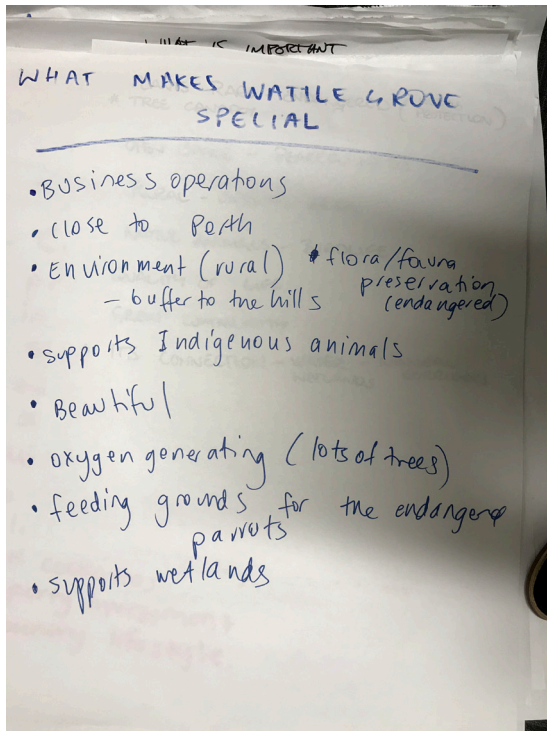 WHAT IS IMPORTANT
WHAT MAKES WATTLE GROVE
SPECIAL
• Business operations
• close to Perth
• Environment (rural) * flora/fauna
preservation
- buffer to the hills (endangered)
• supports Indigenous animals
• Beautiful
• oxygen generating (lots of trees)
• feeding grounds for the endangered
parrots
• supports wetlands